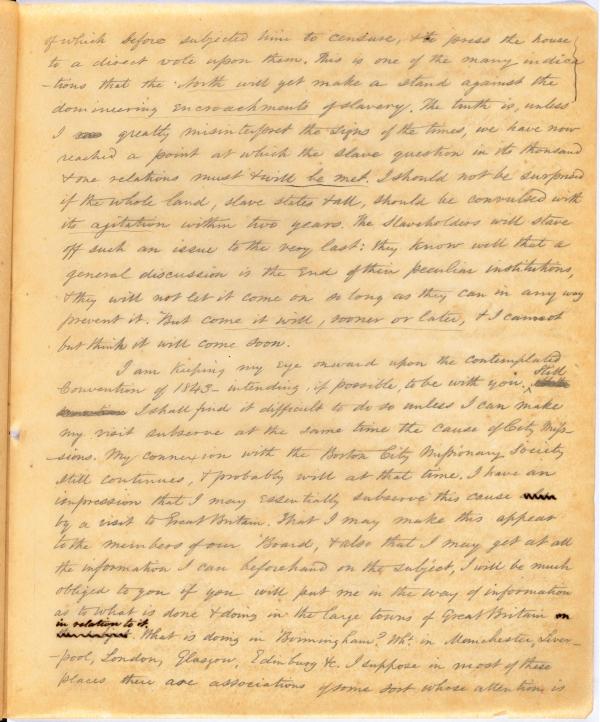 of which before subjected him to censure, & to press the house
to a direct vote upon them. This is one of the many indica
-tions that the North will yet make a stand against the
domineering encroachments of slavery. The truth is, unless
I greatly misinterpret the signs of the times, we have now
reached a point at which the slave question in its thousand
& one relations must & will be met. I should not be surprised
if the whole land, slave states & all, should be convulsed with
its agitation within two years. The Slaveholders will stave
off such an issue to the very last: they know well that a
general discussion is the end of their peculiar institutions,
& they will not let it come on so long as they can in any way
prevent it. But come it will, sooner or later, & I cannot
but think it will come soon.
I am keeping my eye onward upon the contemplated
Convention of 1843 - intending, if possible, to be with you. Still
I shall find it difficult to do so unless I can make
my visit subserve at the same time the cause of City Mis
-sions. My connexion with the Boston City Missionary Society
still continues, & probably will at that time. I have an
impression that I may essentially subserve this cause
by a visit to Great Britain. That I may make this appear
to the members of our Board, & also that I may get at all
the information I can beforehand on the subject, I will be much
obliged to you if you will put me in the way of information
as to what is done & doing in the large towns of Great Britain
in relation to it. What is doing in Birmingham? Wh: in Manchester, Liver-
-pool, London, Glasgow, Edinburg &c. I suppose in most of these
places there are associations of some sort whose attention is